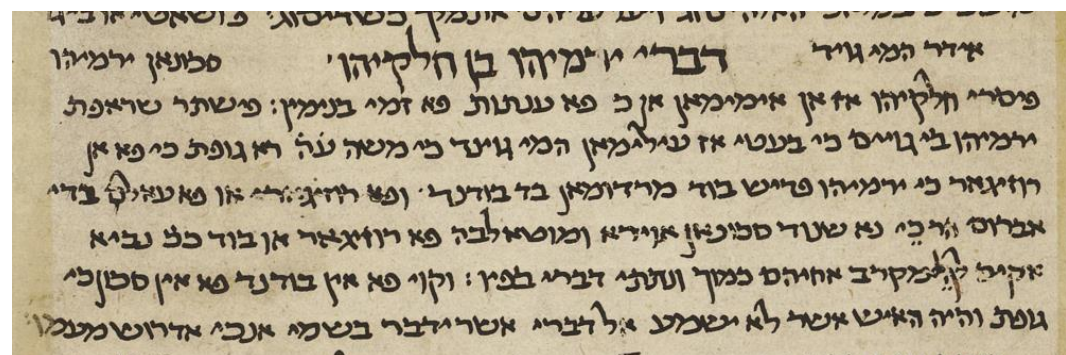 אידר המי גויד דברי ירמיהו בן חלקיהו סכונאן ירמיהו
פיסרי חלקיהו אז אן אימימאן אן כ פא ענתות פא זמי בנימין: פישתר שראפת
ירמיהו בי גוייס כי בעטי אז עילימאן המי גוינד כי משה ע״ה רא גופת כי פא אן
רוזיגאר כי ירמיהו פדיש בוד מרדומאן בד בודנד ופא או פא בדי
אברום כי נא שנוד סכונאן אוירא ומוטאלבה פא רוזיגאר אן בוד כב נביא
אקים מקרב אחיהם כמוך ונתתי דברי בפיו: וקוי פא אין בודנד פא אין סכון כי
גופת והיה האיש אשר לא ישמע אל דברי אשר ידבר בשמי אנכי אדרוש מעמו